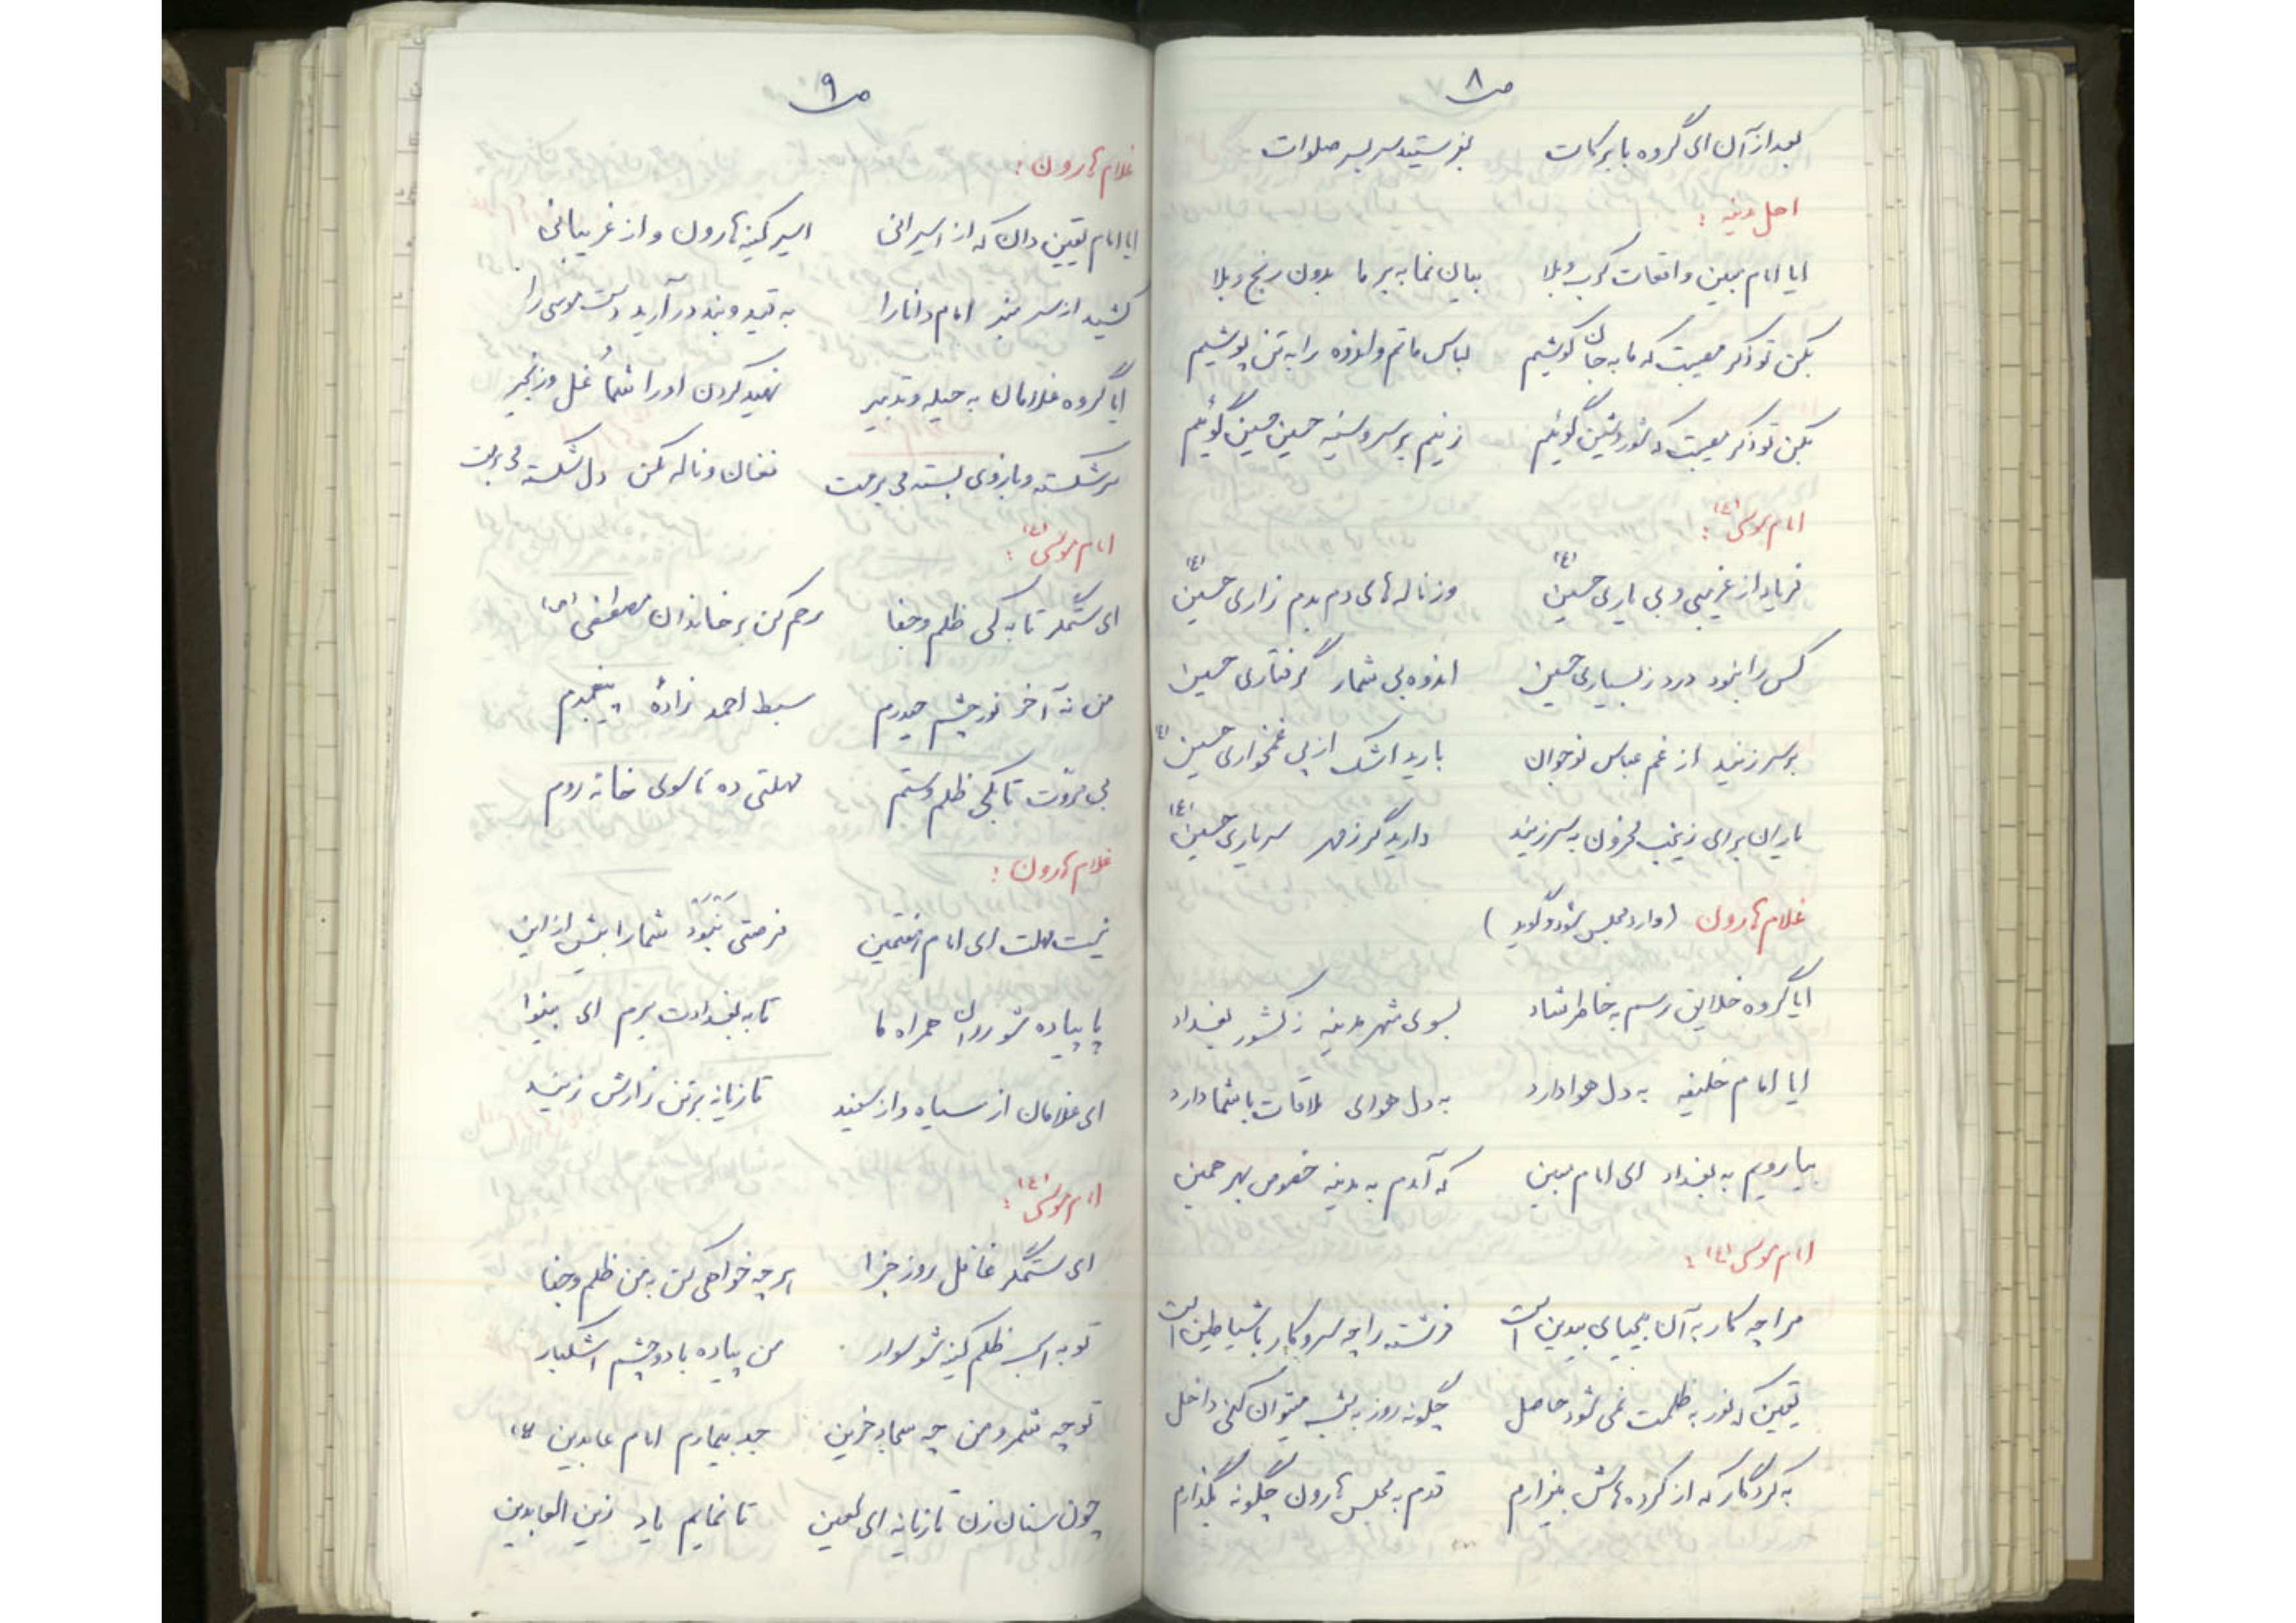 ص ۸
بعد از آن ای گروه با برکات بفرستید سر بسر صلوات
اهل مدینه :
ایا امام مبین واقعات کرب و بلا بیان نما به بر ما بدون رنج و بلا
بکن تو ذکر مصیبت که ما به جان کوشیم لباس ماتم و اندوه را به تن پوشیم
بکن تو ذکر مصیبت که شور و شین گوئیم زنیم بر سر و سینه حسین حسین گوئیم
امام موسی (ع) :
فریاد از غریبی و بی یاری حسین (ع) وز ناله های دم بدم زاری حسین (ع)
کس را نبود درد ز بسیاری حسین اندوه بی شمار گرفتاری حسین
بر سر زنید از غم عباس نوجوان بارید اشک از پی غمخواری حسین (ع)
یاران برای زینب محزون به سر زنید دارید گر ز مهر سر یاری حسین (ع)
غلام هارون (وارد مجلس شود و گوید)
ایا گروه خلایق رسم به خاطر شاد بسوی شهر مدینه ز کشور بغداد
ایا امام خلیفه به دل هوا دارد به دل هوای ملاقات با شما دارد
بیا رویم به بغداد ای امام مبین که آمدم به مدینه خصوص بهر همین
امام موسی (ع) :
مرا چه کار به آن بیحیای بیدین است فرشته را چه سر و کار با شیاطین است
یقین که نور به ظلمت نمی شود حاصل چگونه روز به شب میتوان کنی داخل
به کردگار که از کرده هاش بیزارم قدم به مجلس هارون چگونه بگذارم
ص ۹
غلام هارون :
ایا امام یقین دان که از اسیرانی اسیر کینه هارون و از غریبانی
کشید از سر منبر امام دانا را به قید و بند در آرید دست موسی را
ایا گروه غلامان به حیله و تدبیر نهید گردن او را شما غل و زنجیر
سر شکسته و بازوی بسته می برمت فغان و ناله مکن دل شکسته می برمت
امام موسی (ع) :
ای ستمگر تا به کی ظلم و جفا رحم کن بر خاندان مصطفی (ص)
من نه آخر نور چشم حیدرم سبط احمد زادهٔ پیغمبرم
بی مروّت تا بکی ظلم و ستم مهلتی ده تا سوی خانه روم
غلام هارون :
نیست مهلت ای امام هفتمین فرصتی نَبْوَد شما را بیش از این
پا پیاده شو روان همراه ما تا به بغدادت برم ای بینوا
ای غلامان از سیاه و از سفید تازیانه بر تن زارش زنید
امام موسی (ع) :
ای ستمگر غافل روز جزا هر چه خواهی کن به من ظلم و جفا
تو به اسب ظلم کینه شو سوار من پیاده با دو چشم اشکبار
تو چه شمر و من چه سجاد حزین جد بیمارم امام عابدین (ع)
چون سنان زن تازیانه ای لعین تا نمایم یاد زین العابدین